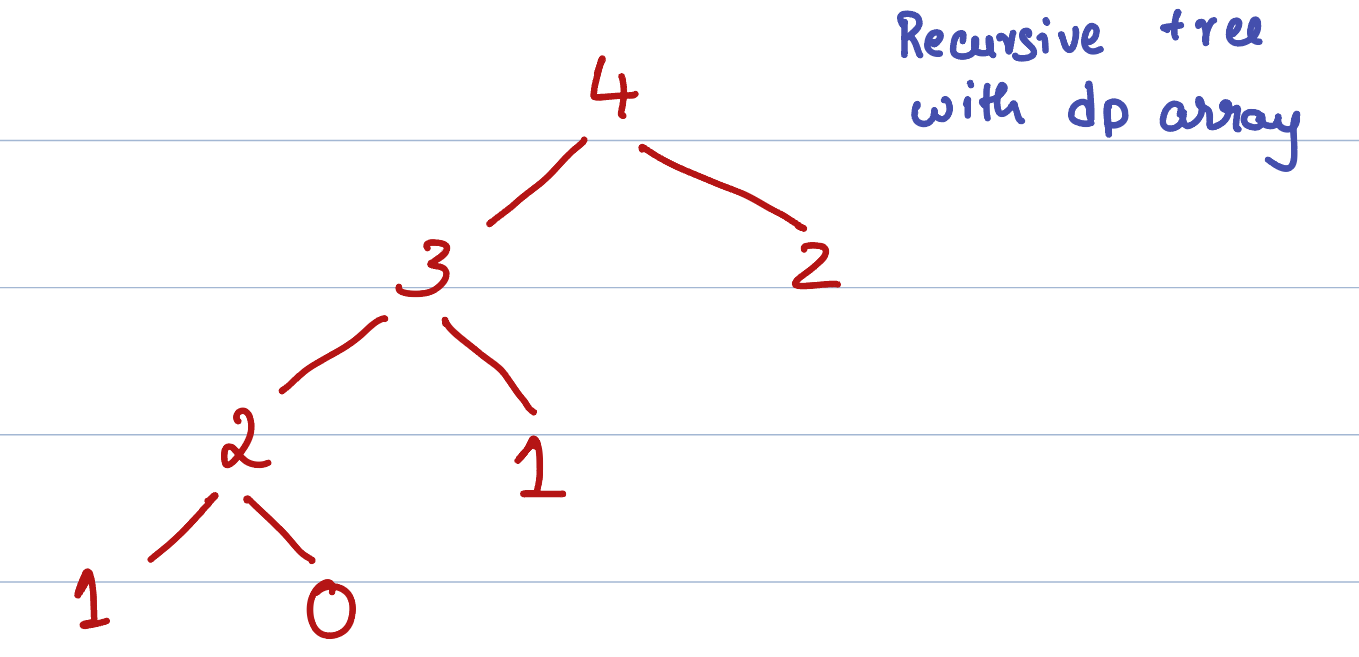 Recursive tree
with dp array
4
3 2
2 1
1 0